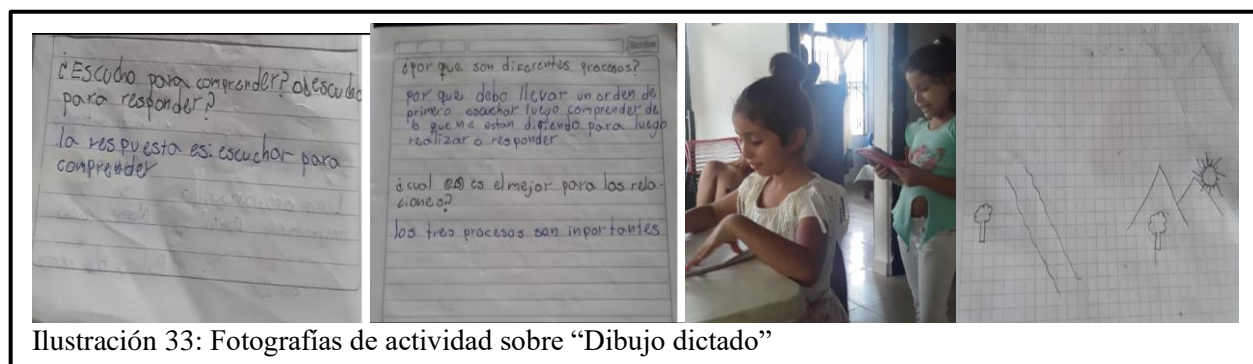 ¿Escucho para comprender? o escucho
para responder?
la respuesta es: escuchar para
comprender
Scribe
¿por que son diferentes procesos?
por que debo llevar un orden de
primero escuchar luego comprender de
lo que me estan diciendo para luego
realizar o responder
¿cual es el mejor para las rela-
ciones?
los tres procesos son inportantes
Ilustración 33: Fotografías de actividad sobre “Dibujo dictado”